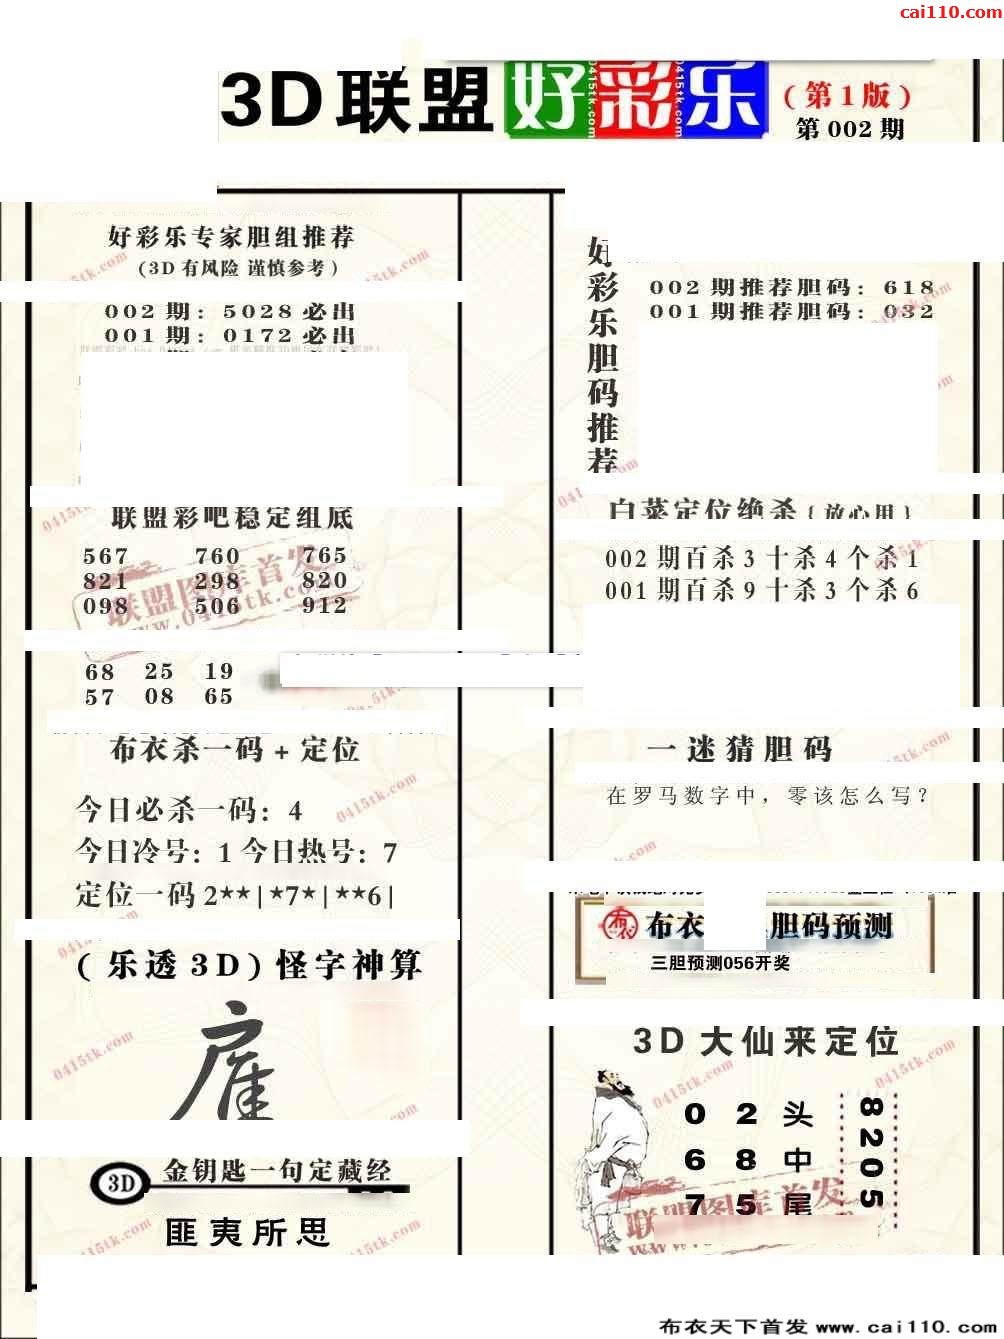 cai110.com
3D联盟 好彩乐 (第1版)
第002期
好彩乐专家胆组推荐
(3D有风险 谨慎参考)
002期: 5028必出
001期: 0172必出
联盟彩吧稳定组底
567 760 765
821 298 820
098 506 912
68 25 19
57 08 65
布衣杀一码+定位
今日必杀一码: 4
今日冷号: 1今日热号: 7
定位一码2**|*7*|**6|
(乐透3D)怪字神算
3D 金钥匙一句定藏经
匪夷所思
好彩乐胆码推荐
002期推荐胆码: 618
001期推荐胆码: 032
白菜定位绝杀{放心用}
002期百杀3十杀4个杀1
001期百杀9十杀3个杀6
一迷猜胆码
在罗马数字中，零该怎么写?
布衣 布衣 胆码预测
三胆预测056开奖
3D大仙来定位
0 2 头
6 8 中
7 5 尾
8205
联盟图库首发
www.0415tk.com
联盟图库首发
0415tk.com
布衣天下首发 www.cai110.com